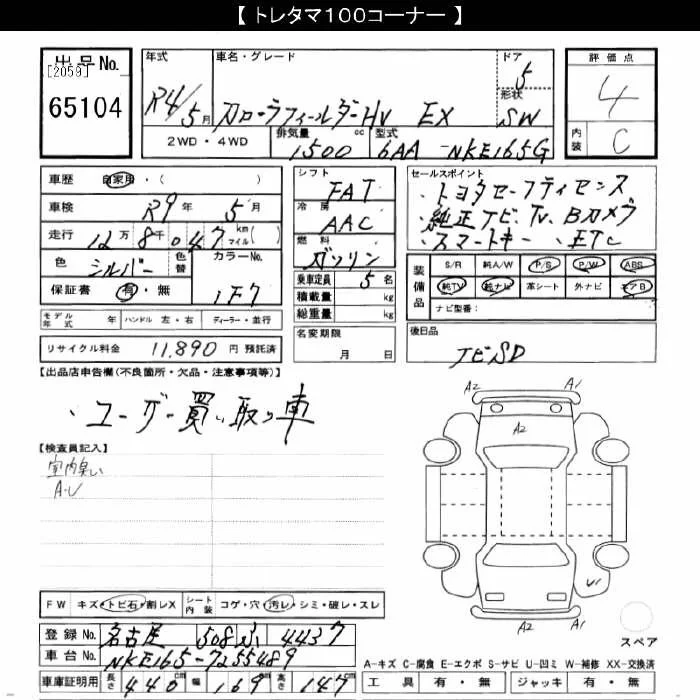 【 トレタマ100コーナー 】
出品No.
[2059]
65104
年式
R4/5月
車名・グレード
カローラフィールダーHV EX
ドア
5
形状
SW
評価点
4
内装
C
2WD・4WD
排気量
1500 cc
型式
6AA-NKE165G
車歴 自家用・( )
車検 R9年 5月
走行 12万8千047 km マイル( )
色 シルバー
色替
カラーNo. 1F7
保証書 有・無
モデル年式 年
ハンドル 左・右
ディーラー・並行
リサイクル料金 11,890 円 預託済
シフト
FAT
冷房
AAC
燃料
ガソリン
乗車定員 5 名
積載量 kg
総重量 kg
名変期限
月 日
セールスポイント
・トヨタセーフティセンス
・純正ナビ、TV、Bカメラ
・スマートキー ・ETC
装備品
S/R 純A/W P/S P/W ABS
純TV 純ナビ 革シート 外ナビ エアB
ナビ型番:
後日品
ナビSD
【出品店申告欄(不良箇所・欠品・注意事項等)】
・ユーザー買い取り車
【検査員記入】
室内臭い
A・U
A2 A1
A2
U1
A2 A1
スペア
FW キズ・トビ石・割レX
シート内装 コゲ・穴・汚レ・シミ・破レ・スレ
登録No. 名古屋 508 ふ 4437
車台No. NKE165-7255489
車庫証明用 長さ 440 cm 幅 169 cm 高さ 147 cm
A-キズ C-腐食 E-エクボ S-サビ U-凹ミ W-補修 XX-交換済
工具 有・無 ジャッキ 有・無